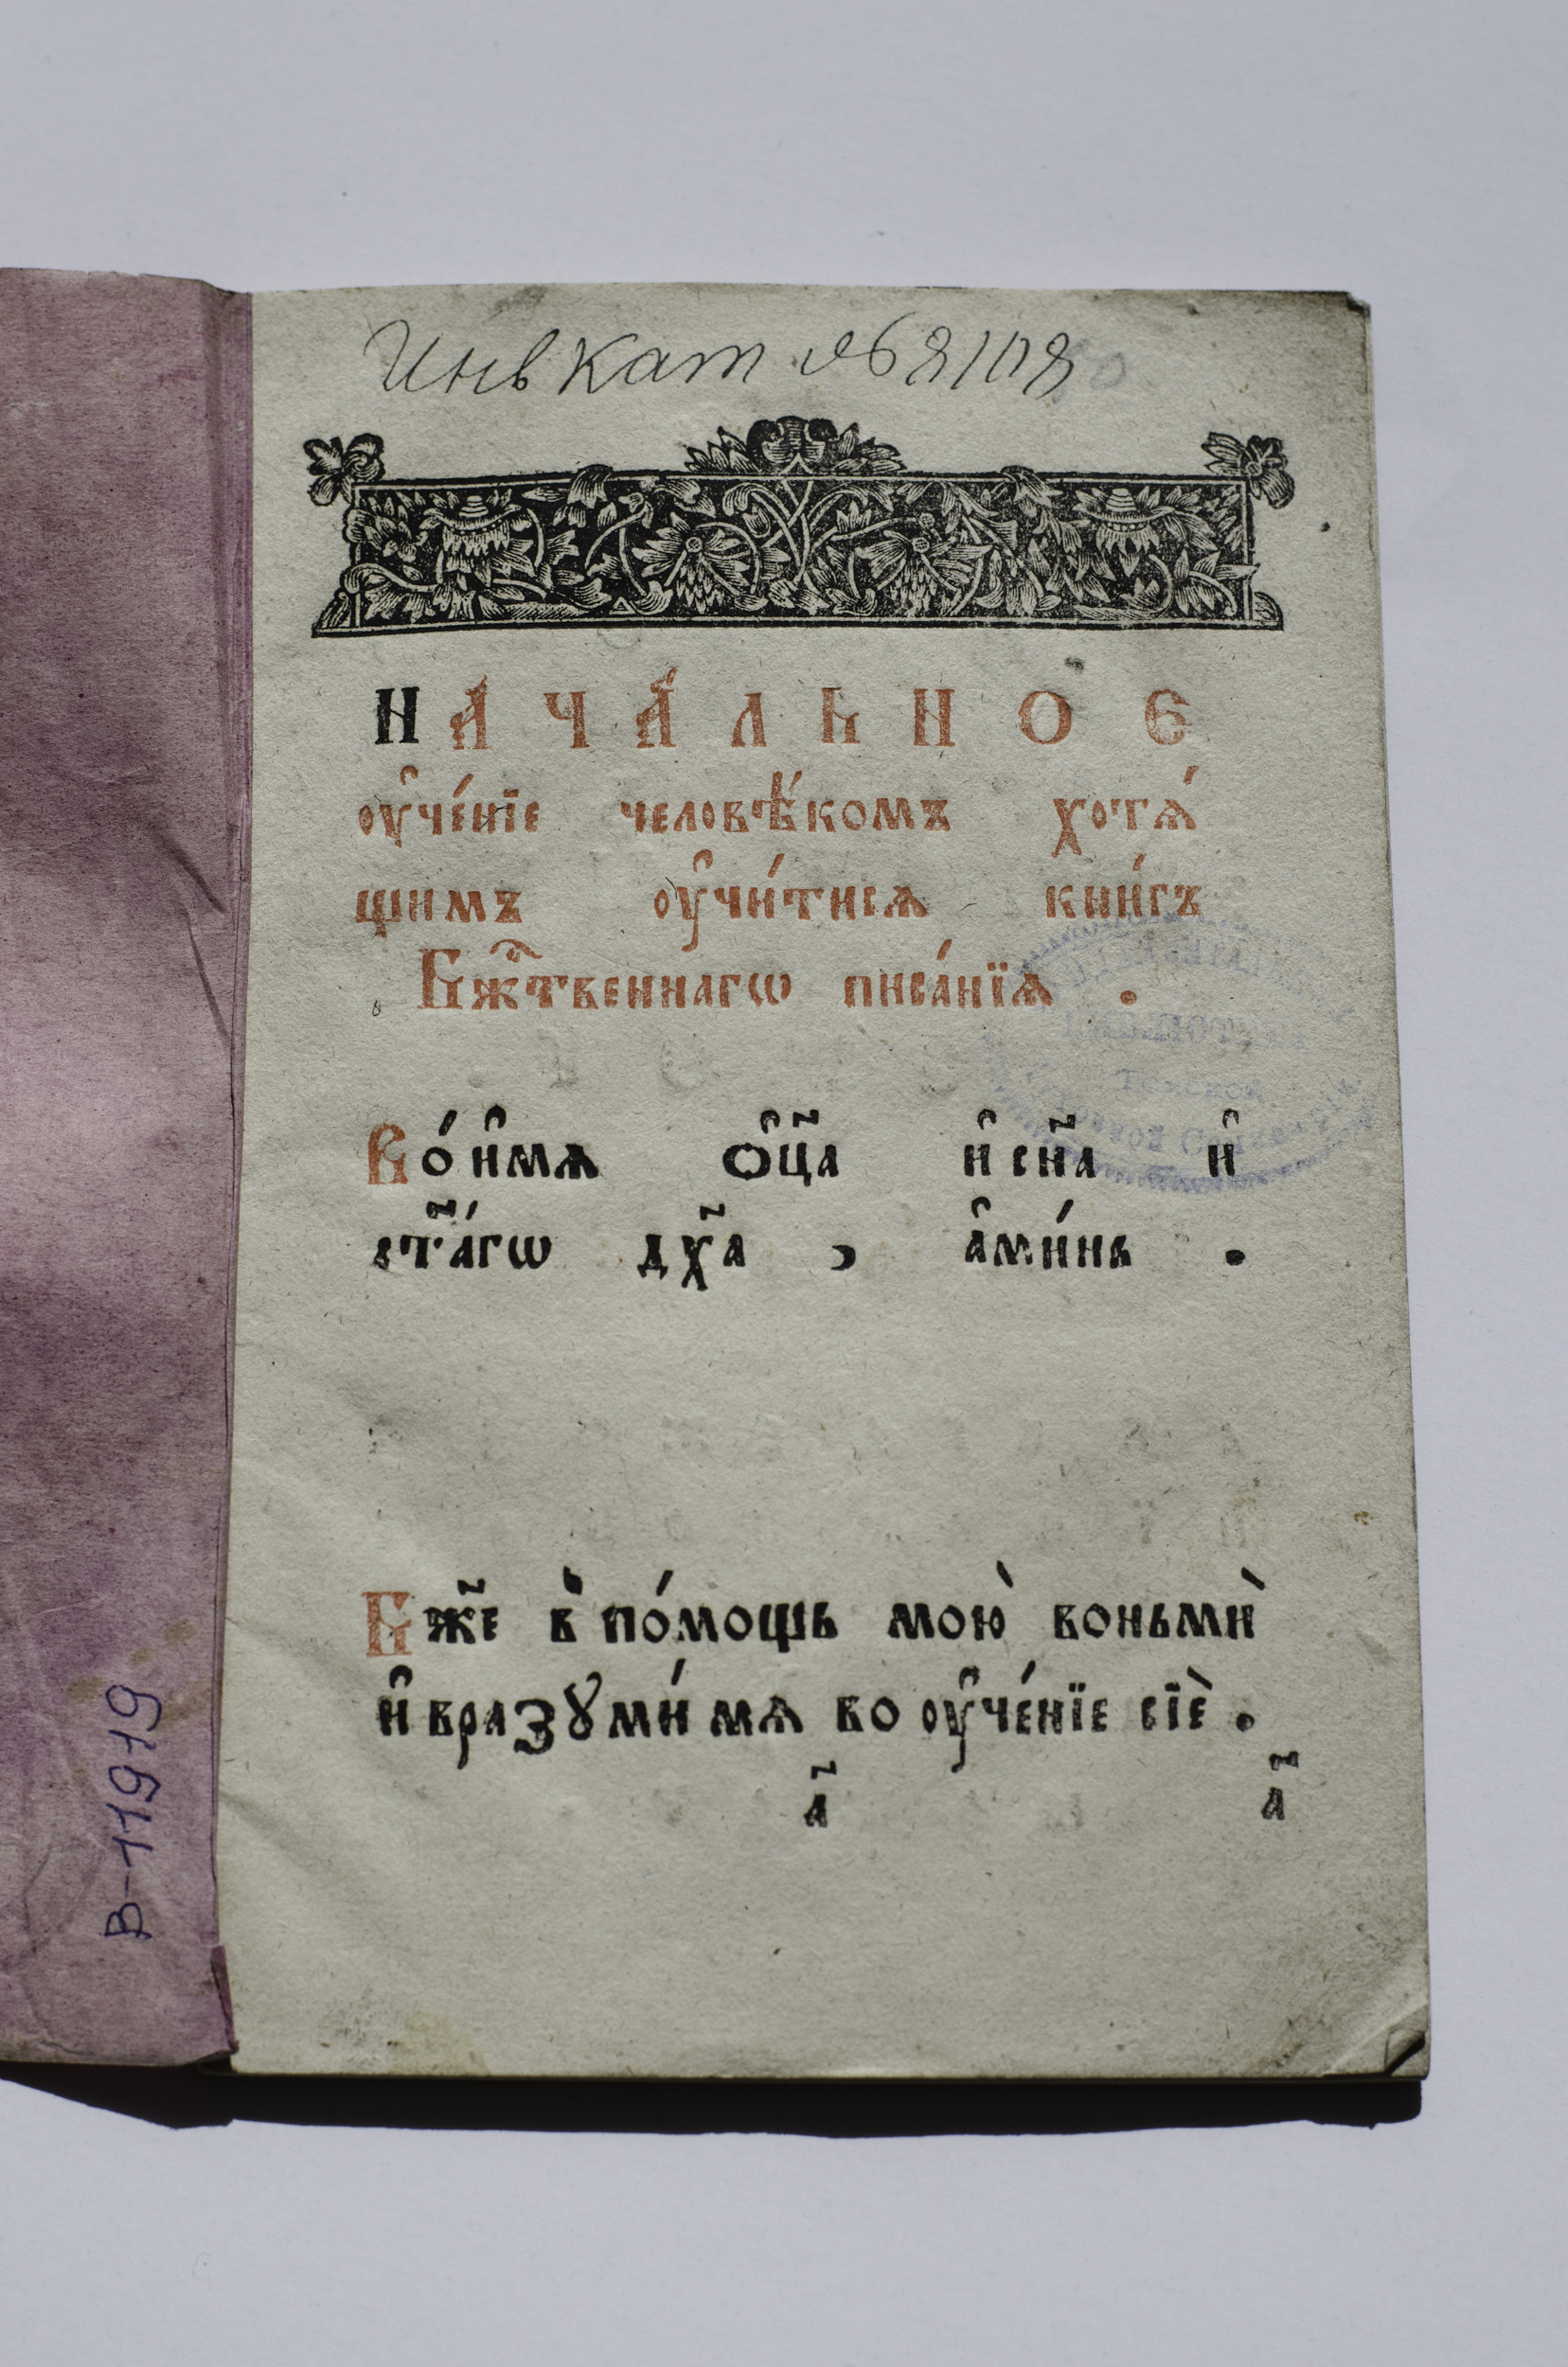 Инв Кат №8108
НАЧА́ЛЬНОЕ
ᲂу҆че́нїе человѣ́комъ хотѧ́
щимъ ᲂу҆чи́тисѧ кни́гъ
Бж҃твеннагѡ писа́нїѧ .
Во́ и҆мѧ ѻ҆ц҃а и҆ сн҃а и҆
ст҃а́гѡ дх҃а , а҆ми́нь .
Бж҃е в̾ по́мощь мою̀ воньмѝ
и҆ вразꙋми́ мѧ во ᲂу҆че́нїе сїѐ .
а҃ а҃
В-11919